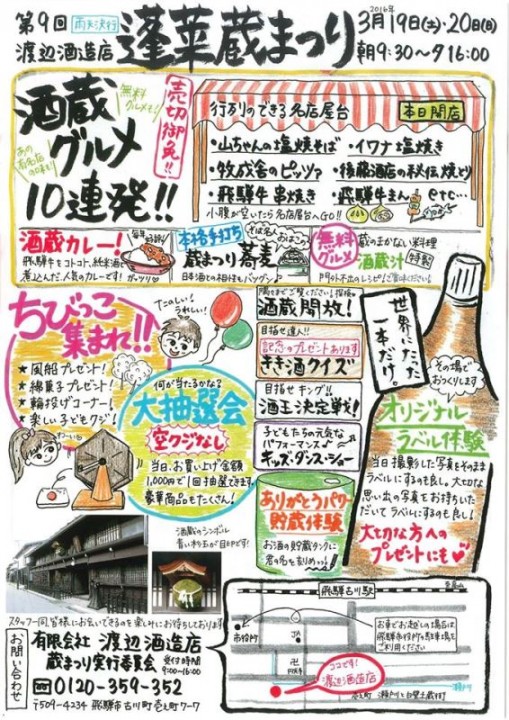 第9回 雨天決行
渡辺酒造店
蓬莱蔵まつり
2016年
3月19日(土)・20日(日)
朝9:30〜夕16:00
酒蔵
グルメ
10連発!!
無料グルメも!
あの有名店の味も!
売切御免!!
行列のできる名店屋台
本日開店
・山ちゃんの塩焼そば ・イワナ塩焼き
・牧成舎のピッツァ ・後藤酒店の秘伝焼とり
・飛騨牛串焼き ・飛騨牛まん etc…
小腹が空いたら名店屋台へGO!!
酒蔵カレー!
毎年好評!
飛騨牛をコトコト、純米酒で
煮込んだ、人気のカレーです! ガッツリ♡
本格手打ち
そば名人おはこの
蔵まつり蕎麦
日本酒との相性もバッグン♪
無料
グルメ
蔵のまかない料理
酒蔵汁 特製
門外不出のレシピ!ご賞味ください!
ちびっこ
集まれ!!
たのしい!
うれしい!
★風船プレゼント!
★綿菓子プレゼント!
★輪投げコーナー!
★楽しい子どもクジ!
わーい
何が当たるかな?
大抽選会
空クジなし
当日、お買い上げ金額
1,000円で1回抽選できます
豪華商品もたくさん!
隅々までご覧ください!探検
酒蔵開放!
目指せ達人!!
記念のプレゼントあります
きき酒クイズ
目指せキング!!
酒王決定戦!
子どもたちの元気な
パフォーマンス♪
キッズ・ダンス・ショー
ありがとうパワー
貯蔵体験
お酒の貯蔵タンクに
君の名を刻めっ!!
世界にたった
一本だけ。
その場で
おつくりします
オリジナル
ラベル体験
当日撮影した写真をそのまま
ラベルにするのも良し。大切な
思い出の写真をお持ちいた
だいてラベルにするのも良し!
大切な方への
プレゼントにも♥
酒蔵のシンボル
青い杉玉が目印です!
スタッフ一同、皆様にお会いできるのを楽しみにお待ちしております
お問い合わせ
有限会社 渡辺酒造店
蔵まつり実行委員会 受付時間
9:00〜16:00
0120-359-352
〒509-4234 飛騨市古川町壱之町7-7
飛騨古川駅
至高山
市役所
JA
卍
円光寺
ココです!
渡辺酒造店
お車でお越しの場合は
飛騨市役所の駐車場を
ご利用ください
瀬戸川
壱之町 瀬戸川と白壁土蔵街